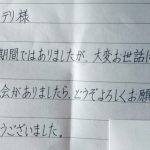 テリ様
期間ではありましたが、大変お世話に
会がありましたら、どうぞよろしくお願
うございました。